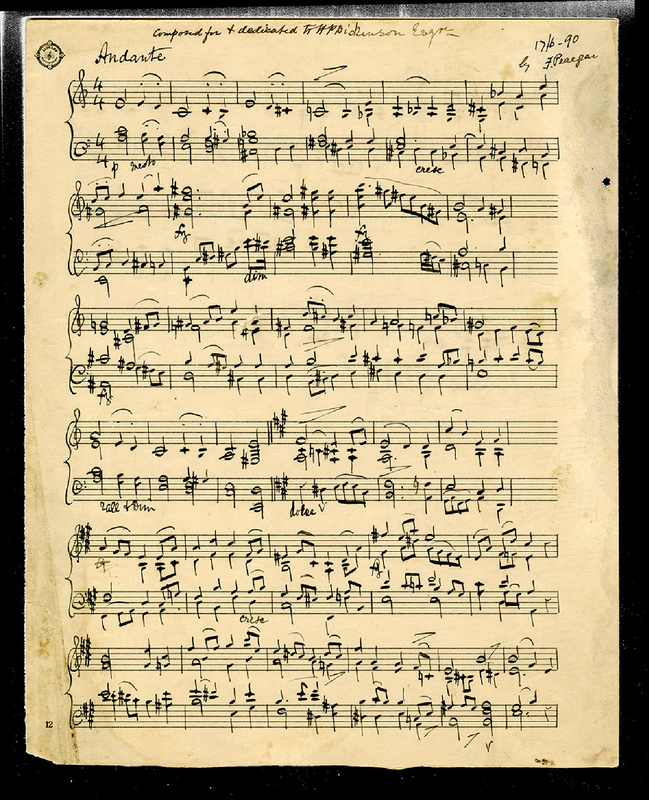 Composed for & dedicated to H P Dickinson Esqre
17/6-90
by F. Peregar
Andante
p mesto
cresc
fz
fz
dim
fz
rall & dim
dolce
cresc
12